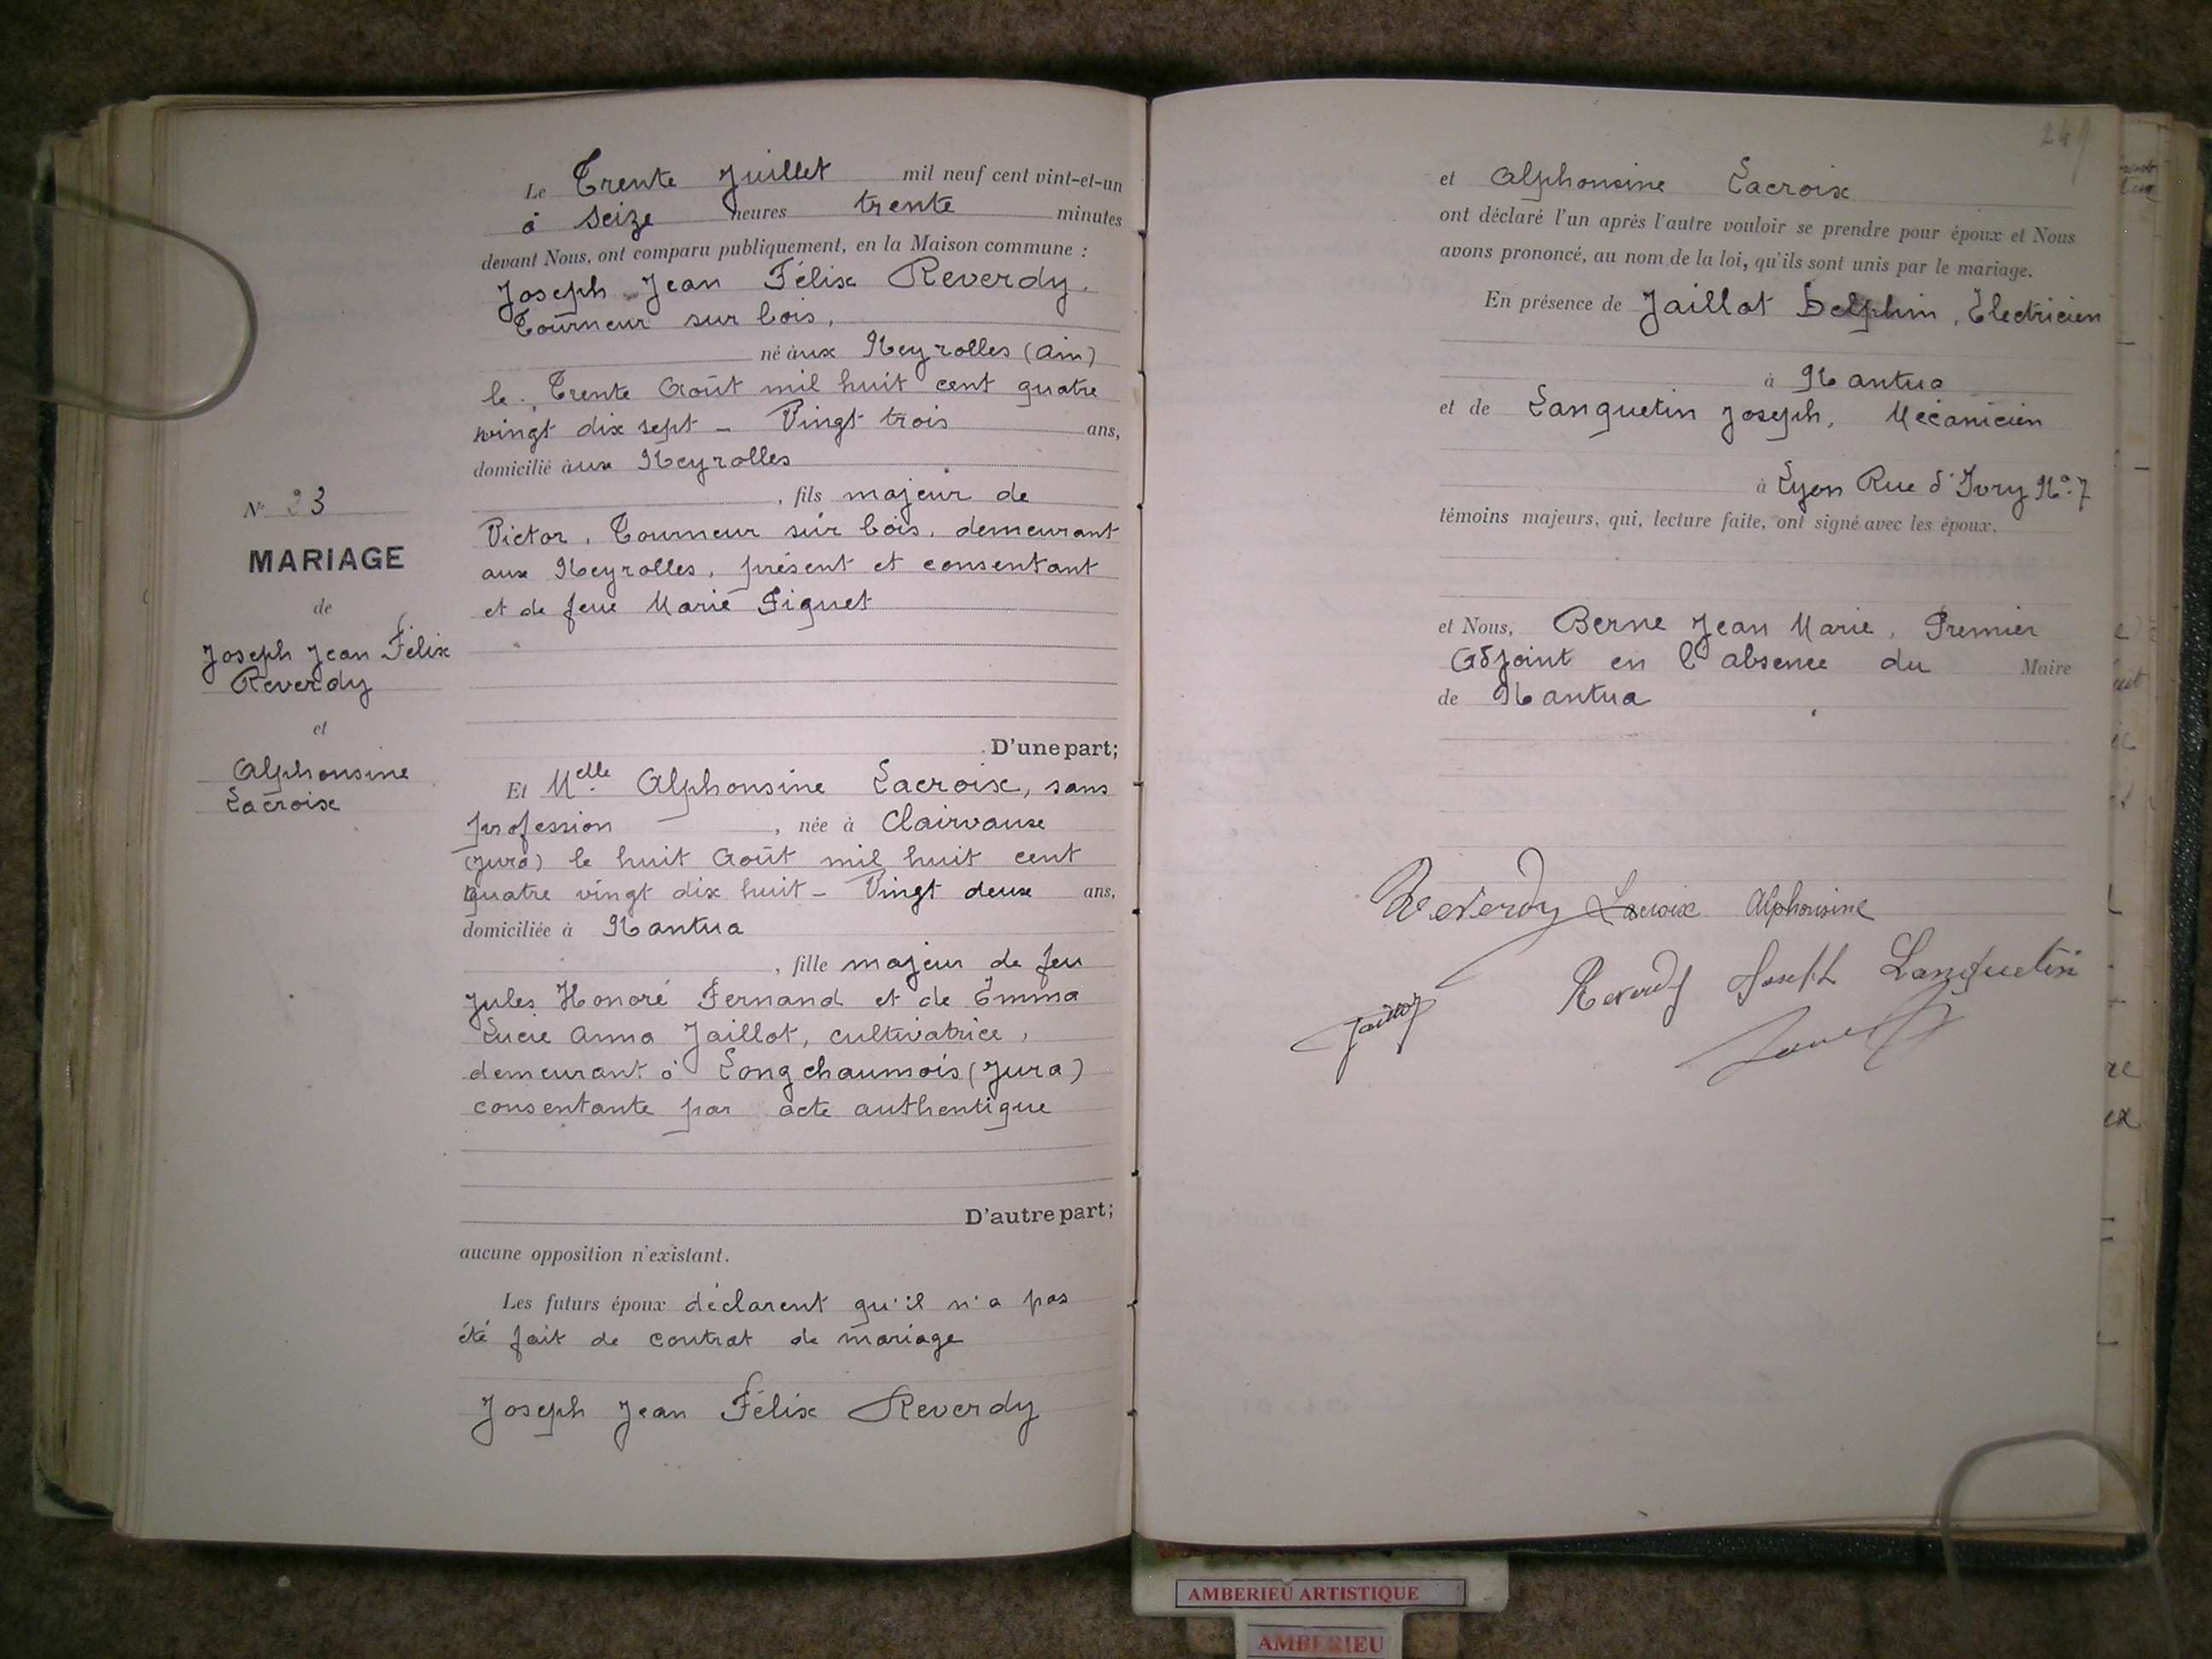 Le Trente Juillet mil neuf cent vint-et-un
à seize heures trente minutes
devant Nous, ont comparu publiquement, en la Maison commune :
Joseph Jean Félix Reverdy.
Tourneur sur bois,
né àux Neyrolles (Ain)
le Trente Août mil huit cent quatre
vingt dix sept - Vingt trois ans,
domicilié àux Neyrolles
, fils majeur de
Victor, Tourneur sur bois, demeurant
aux Neyrolles, présent et consentant
et de feue Marie Piguet
D'une part;
Et Melle Alphonsine Lacroix, sans
profession , née à Clairvaux
(Jura) le huit Août mil huit cent
quatre vingt dix huit - Vingt deux ans,
domiciliée à Nantua
, fille majeur de feu
Jules Honoré Fernand et de Emma
Lucie Anna Jaillot, cultivatrice,
demeurant à Longchaumois (Jura)
consentante par acte authentique
D'autre part;
aucune opposition n'existant.
Les futurs époux déclarent qu'il n'a pas
été fait de contrat de mariage
Joseph Jean Félix Reverdy
N° 23
MARIAGE
de
Joseph Jean Félix
Reverdy
et
Alphonsine
Lacroix
et Alphonsine Lacroix
ont déclaré l'un après l'autre vouloir se prendre pour époux et Nous
avons prononcé, au nom de la loi, qu'ils sont unis par le mariage.
En présence de Jaillot Delphin, Electricien
à Nantua
et de Lanquetin Joseph, Mécanicien
à Lyon Rue d'Ivry N° 7
témoins majeurs, qui, lecture faite, ont signé avec les époux.
et Nous, Berne Jean Marie, Premier
Adjoint en l'absence du Maire
de Nantua
Reverdy Lacroix Alphonsine
Reverdy Joseph Lanquetin
Jaillot
AMBERIEU ARTISTIQUE
AMBERIEU